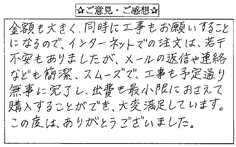 ☆ご意見・ご感想☆
金額も大きく、同時に工事もお願いすること
になるので、インターネットでの注文は、若干
不安もありましたが、メールの返信や連絡
なども簡潔、スムーズで、工事も予定通り
無事に完了し、出費も最小限におさえて
購入することができ、大変満足しています。
この度は、ありがとうございました。